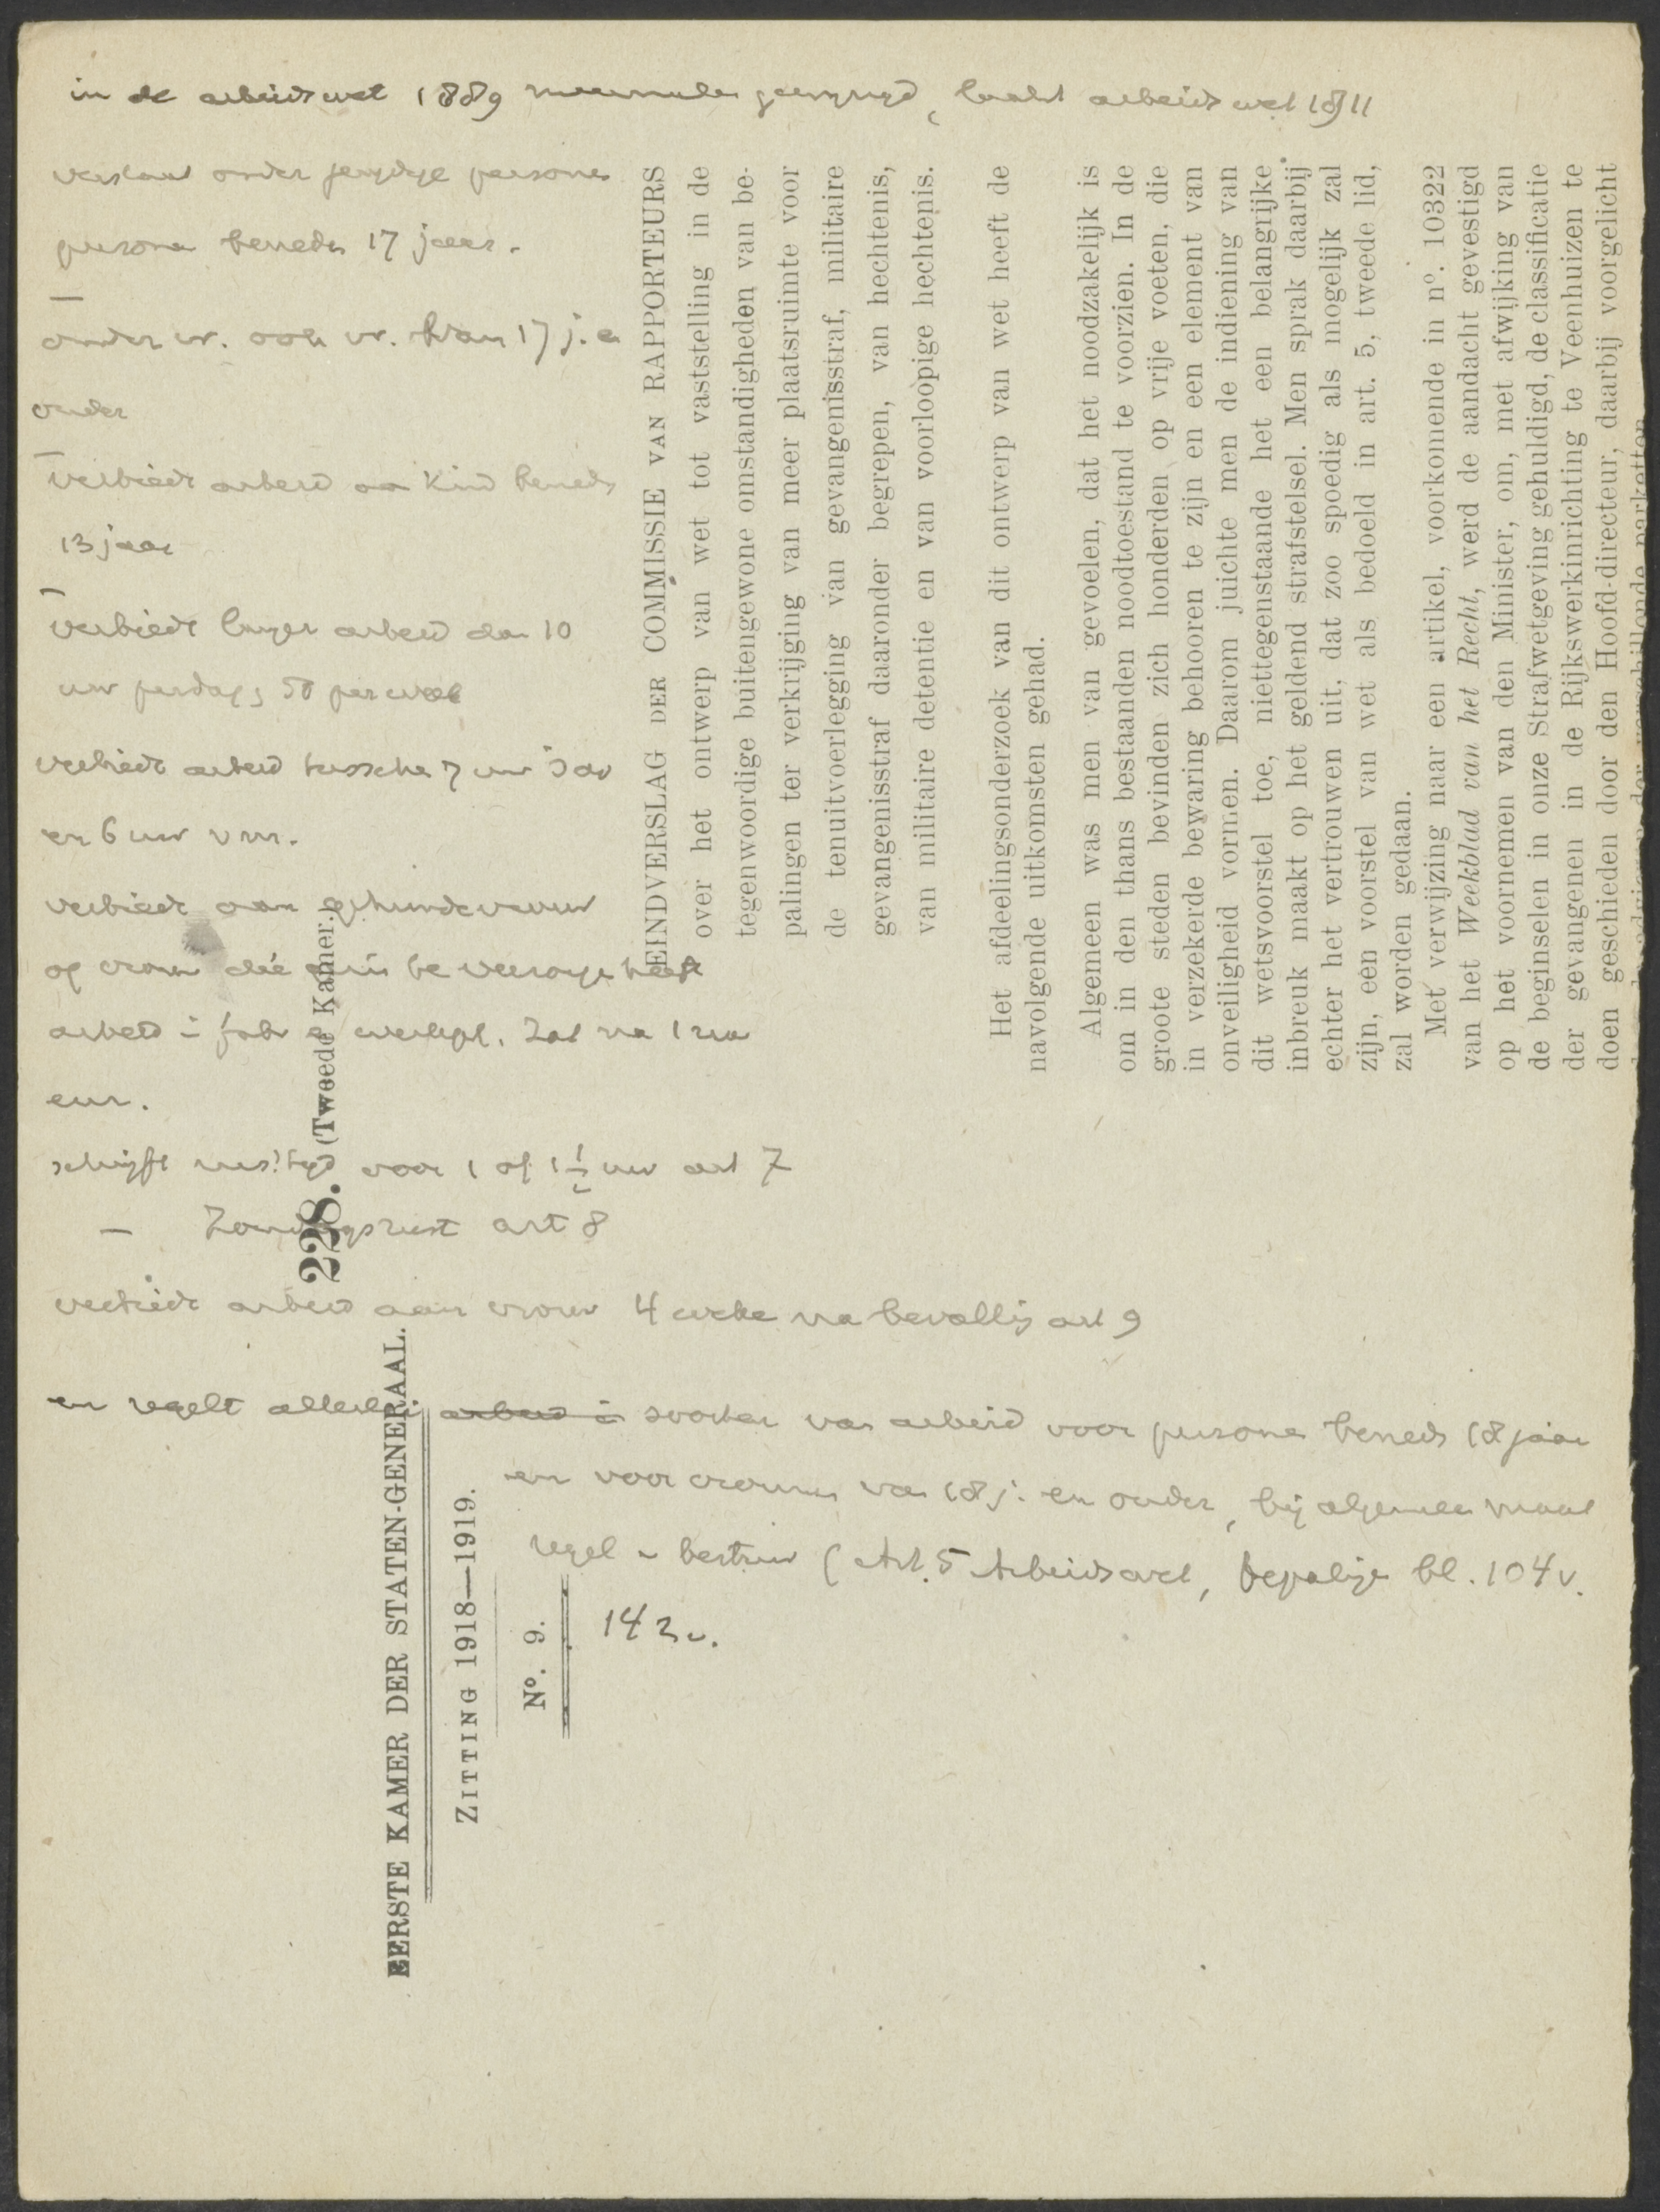 in de arbeidswet 1889 meermalen gewijzigd, laatst arbeidswet 1911
verstaat onder jeugdige personen
persone beneden 17 jaar.
onder vr. ook vr. van 17 j. en
ouder
verbiedt arbeid aan kind beneden
13 jaar
verbiedt langer arbeid dan 10
uur per dag, 58 per week
verbiedt arbeid tussche 7 uur 's av
en 6 uur v m.
verbiedt aan gehuwde vrouw
of vrouw die huis be
arbeid i fabr e werkpl. Zat na 1 uur
schrijft rusttijd voor 1 of 1½ uur art 7
— Zondagsrust art 8
verbiedt arbeid aan vrouw 4 weke na bevallig art 9
en regelt allerlei arbeid in soorten van arbeid voor persone beneden 18 jaar
en voor vrouwen van 18 j. en ouder, bij algemeen maat
regel v bestuur (Art. 5 Arbeidswet, bepalige bl. 104 v.
142 v.
228. (Tweede Kamer.)
EERSTE KAMER DER STATEN-GENERAAL.
ZITTING 1918—1919.
Nº. 9.
EINDVERSLAG DER COMMISSIE VAN RAPPORTEURS
over het ontwerp van wet tot vaststelling in de
tegenwoordige buitengewone omstandigheden van be-
palingen ter verkrijging van meer plaatsruimte voor
de tenuitvoerlegging van gevangenisstraf, militaire
gevangenisstraf daaronder begrepen, van hechtenis,
van militaire detentie en van voorloopige hechtenis.
Het afdeelingsonderzoek van dit ontwerp van wet heeft de
navolgende uitkomsten gehad.
Algemeen was men van gevoelen, dat het noodzakelijk is
om in den thans bestaanden noodtoestand te voorzien. In de
groote steden bevinden zich honderden op vrije voeten, die
in verzekerde bewaring behooren te zijn en een element van
onveiligheid vormen. Daarom juichte men de indiening van
dit wetsvoorstel toe, niettegenstaande het een belangrijke
inbreuk maakt op het geldend strafstelsel. Men sprak daarbij
echter het vertrouwen uit, dat zoo spoedig als mogelijk zal
zijn, een voorstel van wet als bedoeld in art. 5, tweede lid,
zal worden gedaan.
Met verwijzing naar een artikel, voorkomende in nº. 10322
van het Weekblad van het Recht, werd de aandacht gevestigd
op het voornemen van den Minister, om, met afwijking van
de beginselen in onze Strafwetgeving gehuldigd, de classificatie
der gevangenen in de Rijkswerkinrichting te Veenhuizen te
doen geschieden door den Hoofd-directeur, daarbij voorgelicht